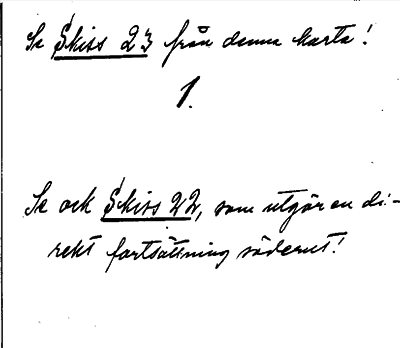 Se Skiss 23 från denna karta!
1.
Se och Skiss 22, som utgör en di-
rekt fortsättning söderut!